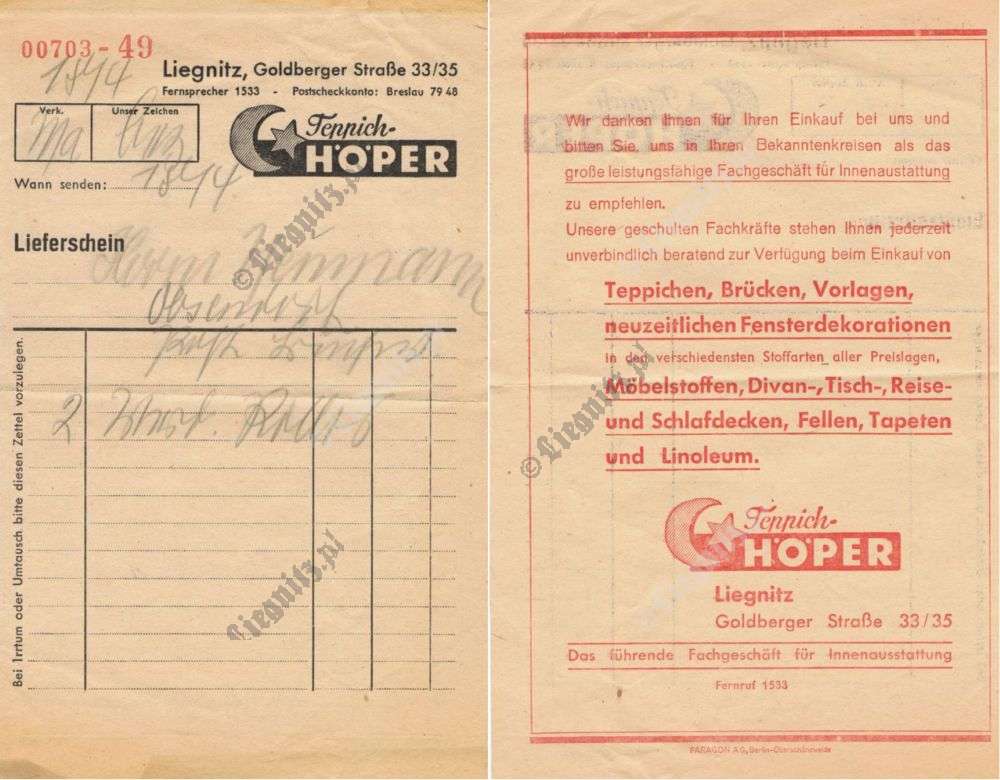 00703-49
Liegnitz, Goldberger Straße 33/35
Fernsprecher 1533 - Postscheckkonto: Breslau 79 48
18/4
Verk. Unser Zeichen
Ma
Teppich-
HÖPER
Wann senden: 18/4.
Lieferschein
Herrn
2
Bei Irrtum oder Umtausch bitte diesen Zettel vorzulegen.
© Liegnitz.pl
Liegnitz.pl
Wir danken Ihnen für Ihren Einkauf bei uns und
bitten Sie, uns in Ihren Bekanntenkreisen als das
große leistungsfähige Fachgeschäft für Innenaustattung
zu empfehlen.
Unsere geschulten Fachkräfte stehen Ihnen jederzeit
unverbindlich beratend zur Verfügung beim Einkauf von
Teppichen, Brücken, Vorlagen,
neuzeitlichen Fensterdekorationen
in den verschiedensten Stoffarten aller Preislagen,
Möbelstoffen, Divan-, Tisch-, Reise-
und Schlafdecken, Fellen, Tapeten
und Linoleum.
© Liegnitz.pl
Teppich-
HÖPER
Liegnitz
Goldberger Straße 33/35
Das führende Fachgeschäft für Innenausstattung
Fernruf 1533
PARAGON AG, Berlin-Oberschöneweide